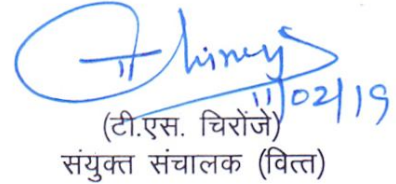 11/02/19
(टी.एस. चिरोंजे)
संयुक्त संचालक (वित्त)